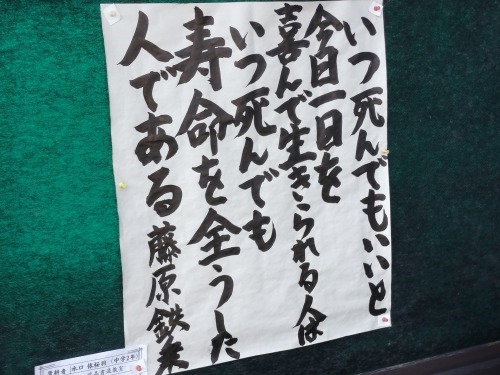 いつ死んでもいいと
今日一日を
喜んで生きられる人は
いつ死んでも
寿命を全うした
人である 藤原鉄
(中学2年)